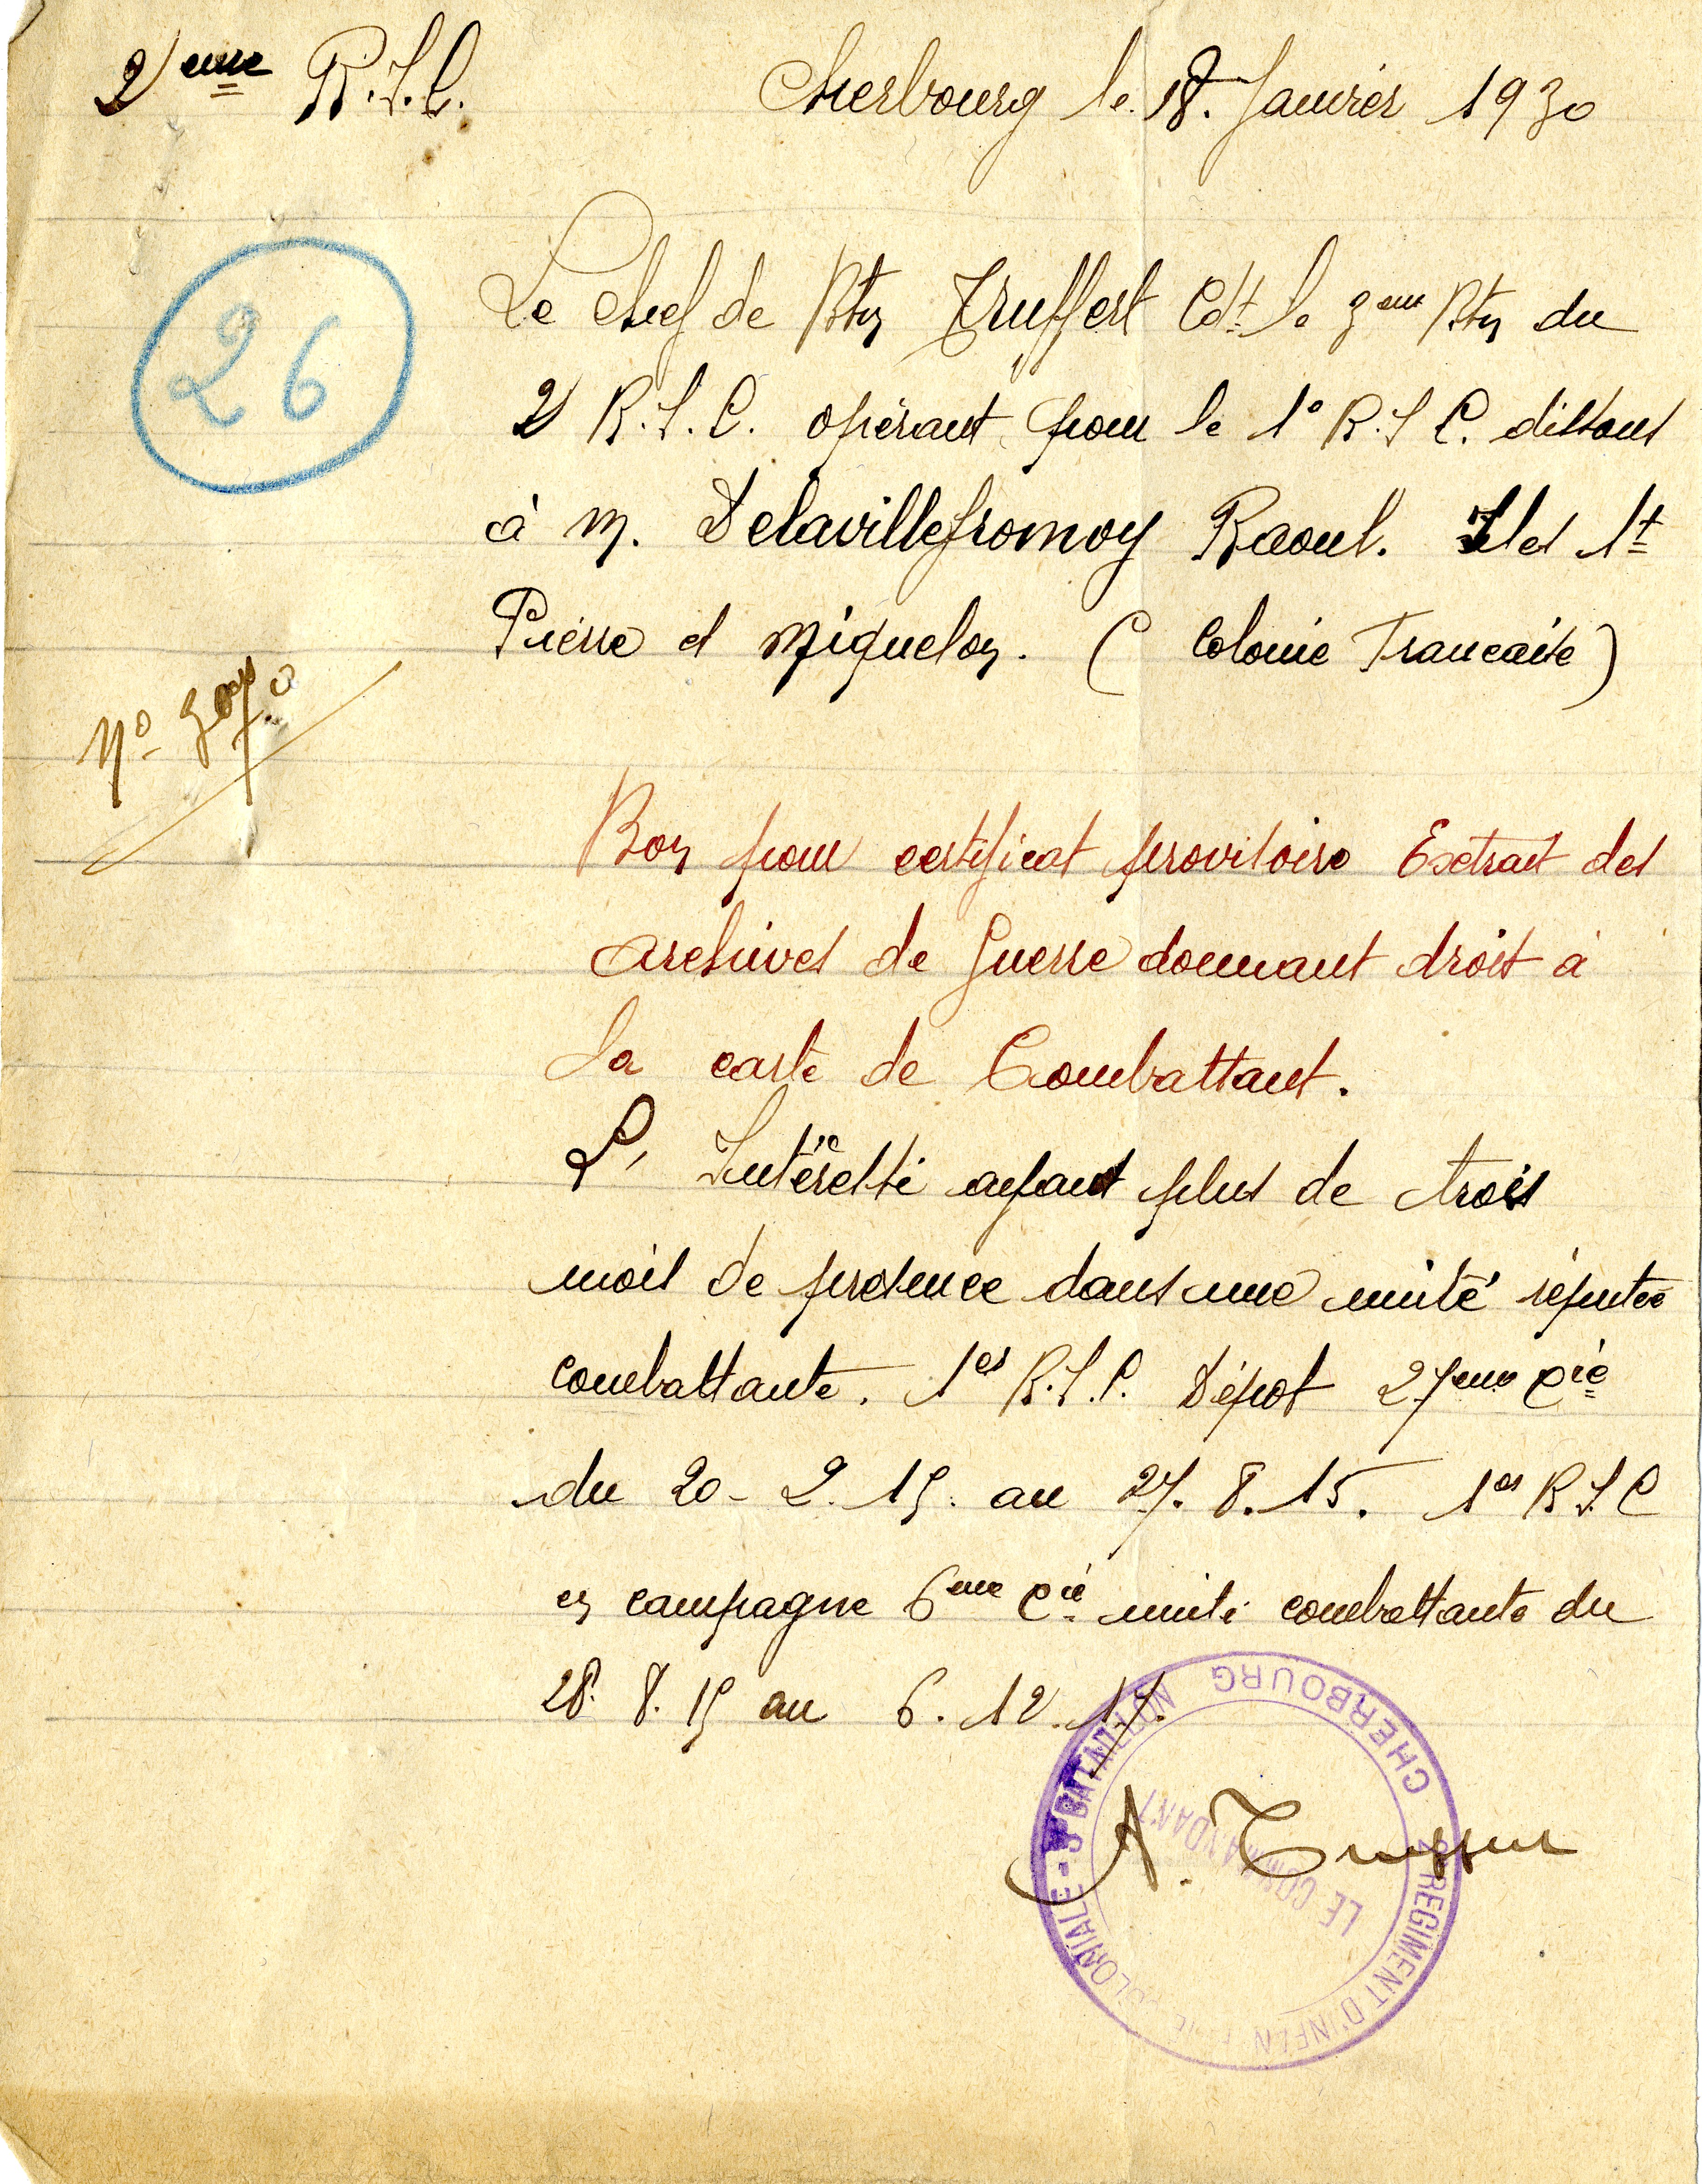 2eme R.I.C.
Cherbourg le 18. Janvier 1930
26
Le Chef de Btn Truffert Cdt le 3eme Btn du
2 R.I.C. opérant pour le 1° R.I.C. dissous
à M. Delavillefromoy Raoul. Iles St
Pierre et Miquelon. ( Colonie Francaise )
No
Bon pour certificat provisoire Extrait des
archives de Guerre donnant droit à
la carte de Combattant.
L' Intéressé ayant plus de trois
mois de présence dans une unité réputée
combattante. 1er R.I.C. Dépot 27eme Cie
du 20-2.15. au 27.8.15. 1er R I C
en campagne 6eme Cie unité combattante du
28. 8. 15 au 6. 12. 17.
A. Truffert
2e REGIMENT D'INFANTERIE COLONIALE - 3e BATAILLON
CHERBOURG
LE COMMANDANT